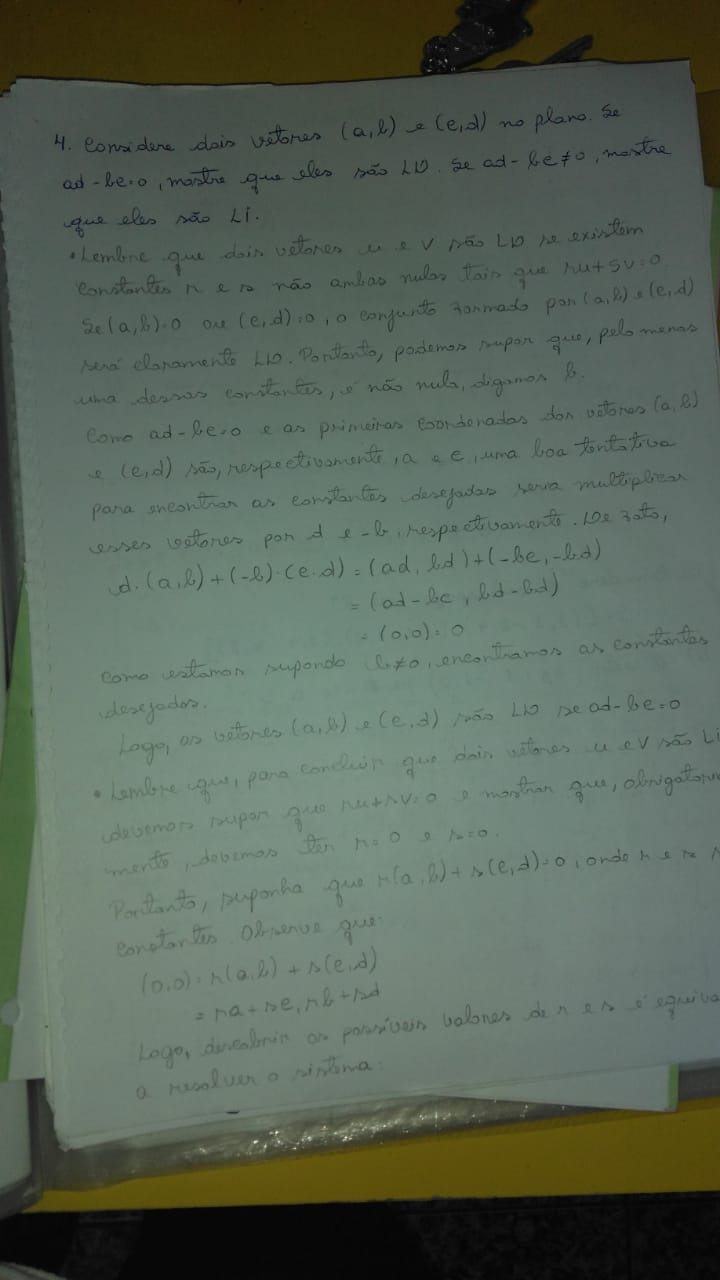 4. Considere dois vetores (a,b) e (c,d) no plano. Se
ad-bc=0, mostre que eles são LD. Se ad-bc≠0, mostre
que eles são Li.
• Lembre que dois vetores u e v são LD se existem
constantes r e s não ambas nulas tais que ru+sv=0
Se (a,b)=0 ou (c,d)=0, o conjunto formado por (a,b) e (c,d)
será claramente LD. Portanto, podemos supor que, pelo menos
uma dessas constantes, é não nula, digamos b.
Como ad-bc=0 e as primeiras coordenadas dos vetores (a,b)
e (c,d) são, respectivamente, a e c, uma boa tentativa
para encontrar as constantes desejadas seria multiplicar
esses vetores por d e -b, respectivamente. De fato,
d.(a,b)+(-b).(c.d)=(ad,bd)+(-bc,-bd)
=(ad-bc, bd-bd)
=(0,0)=0
Como estamos supondo b≠0, encontramos as constantes
desejadas.
Logo, os vetores (a,b) e (c,d) são LD se ad-bc=0
• Lembre que, para concluir que dois vetores u e v são Li
devemos supor que ru+sv=0 e mostrar que, obrigatoria
mente, devemos ter r=0 e s=0.
Portanto, suponha que r(a,b)+s(c,d)=0, onde r e s
constantes. Observe que:
(0,0)=r(a,b)+s(c,d)
=ra+sc, rb+sd
Logo, descobrir os possíveis valores de r e s é equiva
a resolver o sistema: